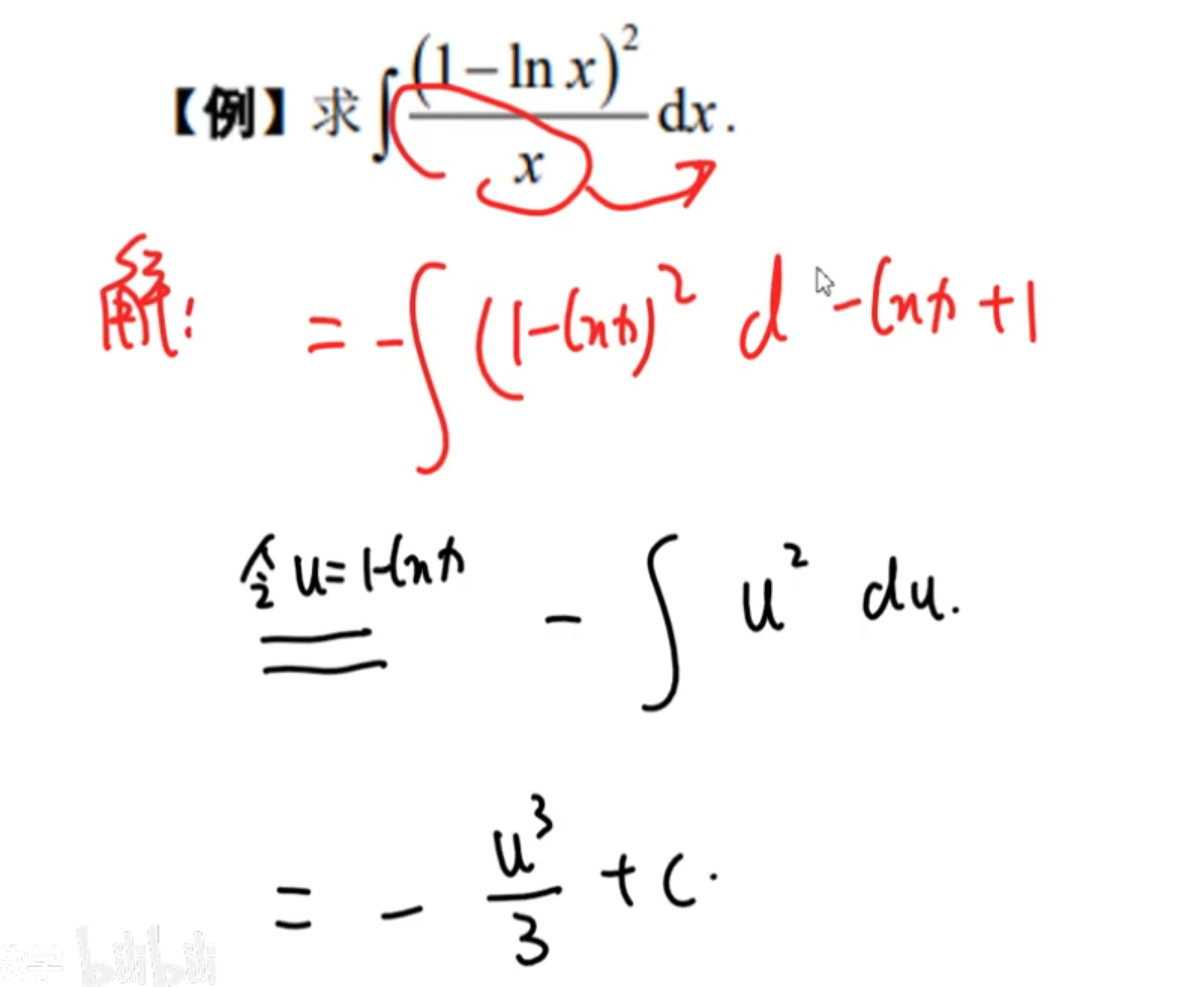 【例】求∫(1－ln x)²/x dx.
解: = -∫(1-lnx)² d -lnx +1
令u=1-lnx - ∫ u² du.
= - u³/3 + C.
数学 bilibili